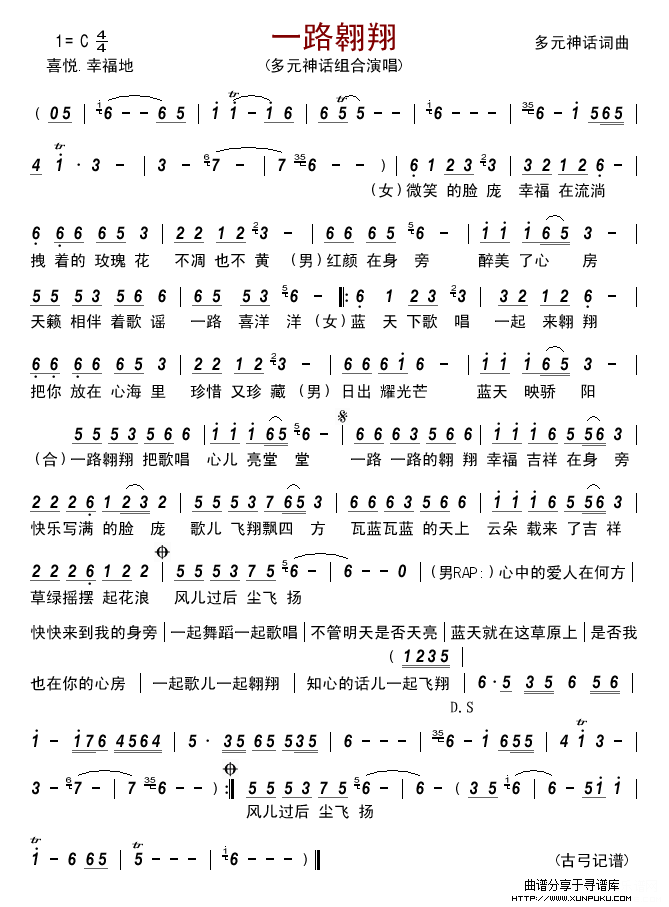 一路翱翔
1= C 4/4
多元神话词曲
喜悦.幸福地
(多元神话组合演唱)
( 05 | i6 - - 65 | i i - i6 | 6 5 - - | i6 - - - | 356 - i 565 |
4 i · 3 - | 3 - 67 - | 7 356 - - ) | 6 1 23 23 | 32 12 6 - |
(女)微笑 的脸 庞 幸福 在流淌
6 66 65 3 | 22 12 23 - | 66 65 56 - | ii i65 3 - |
拽 着的 玫瑰 花 不凋 也不 黄 (男)红颜 在身 旁 醉美 了心 房
55 53 56 6 | 65 53 56 - |: 6 1 23 23 | 32 12 6 - |
天籁 相伴 着歌 谣 一路 喜洋 洋 (女)蓝 天 下歌 唱 一起 来翱 翔
66 66 65 3 | 22 12 23 - | 66 6i 6 - | ii i65 3 - |
把你 放在 心海 里 珍惜 又珍 藏 (男) 日出 耀光芒 蓝天 映骄 阳
55 53 56 6 | ii i65 56 - | 66 63 56 6 | 66 i6 5 563 |
(合)一路翱翔 把歌唱 心儿 亮堂 堂 一路 一路的 翱 翔 幸福 吉祥 在身 旁
22 26 123 2 | 55 53 765 3 | 66 63 56 6 | ii i6 5 563 |
快乐写满 的脸 庞 歌儿 飞翔飘四 方 瓦蓝瓦蓝 的天上 云朵 载来 了吉 祥
22 26 12 2 | 55 53 75 56 - | 6 - - 0 | (男RAP:)心中的爱人在何方 |
草绿摇摆 起花浪 风儿过后 尘飞 扬
快快来到我的身旁 | 一起舞蹈一起歌唱 | 不管明天是否天亮 | 蓝天就在这草原上 | 是否我
( 1235 |
也在你的心房 | 一起歌儿一起翱翔 | 知心的话儿一起飞翔 | 6· 5 35 6 56 |
D.S
i - i76 4564 | 5 · 35 65 535 | 6 - - - | 356 - i 655 | 4 i 3 - |
3 - 67 - | 7 356 - ) :| 55 53 75 56 - | 6 - ( 35 i6 | 6 - 5i i |
风儿过后 尘飞 扬
i - 6 65 | 5 - - - | i6 - - - ) ‖
(古弓记谱)
曲谱分享于寻谱库
HTTP://WWW.XUNPUKU.COM